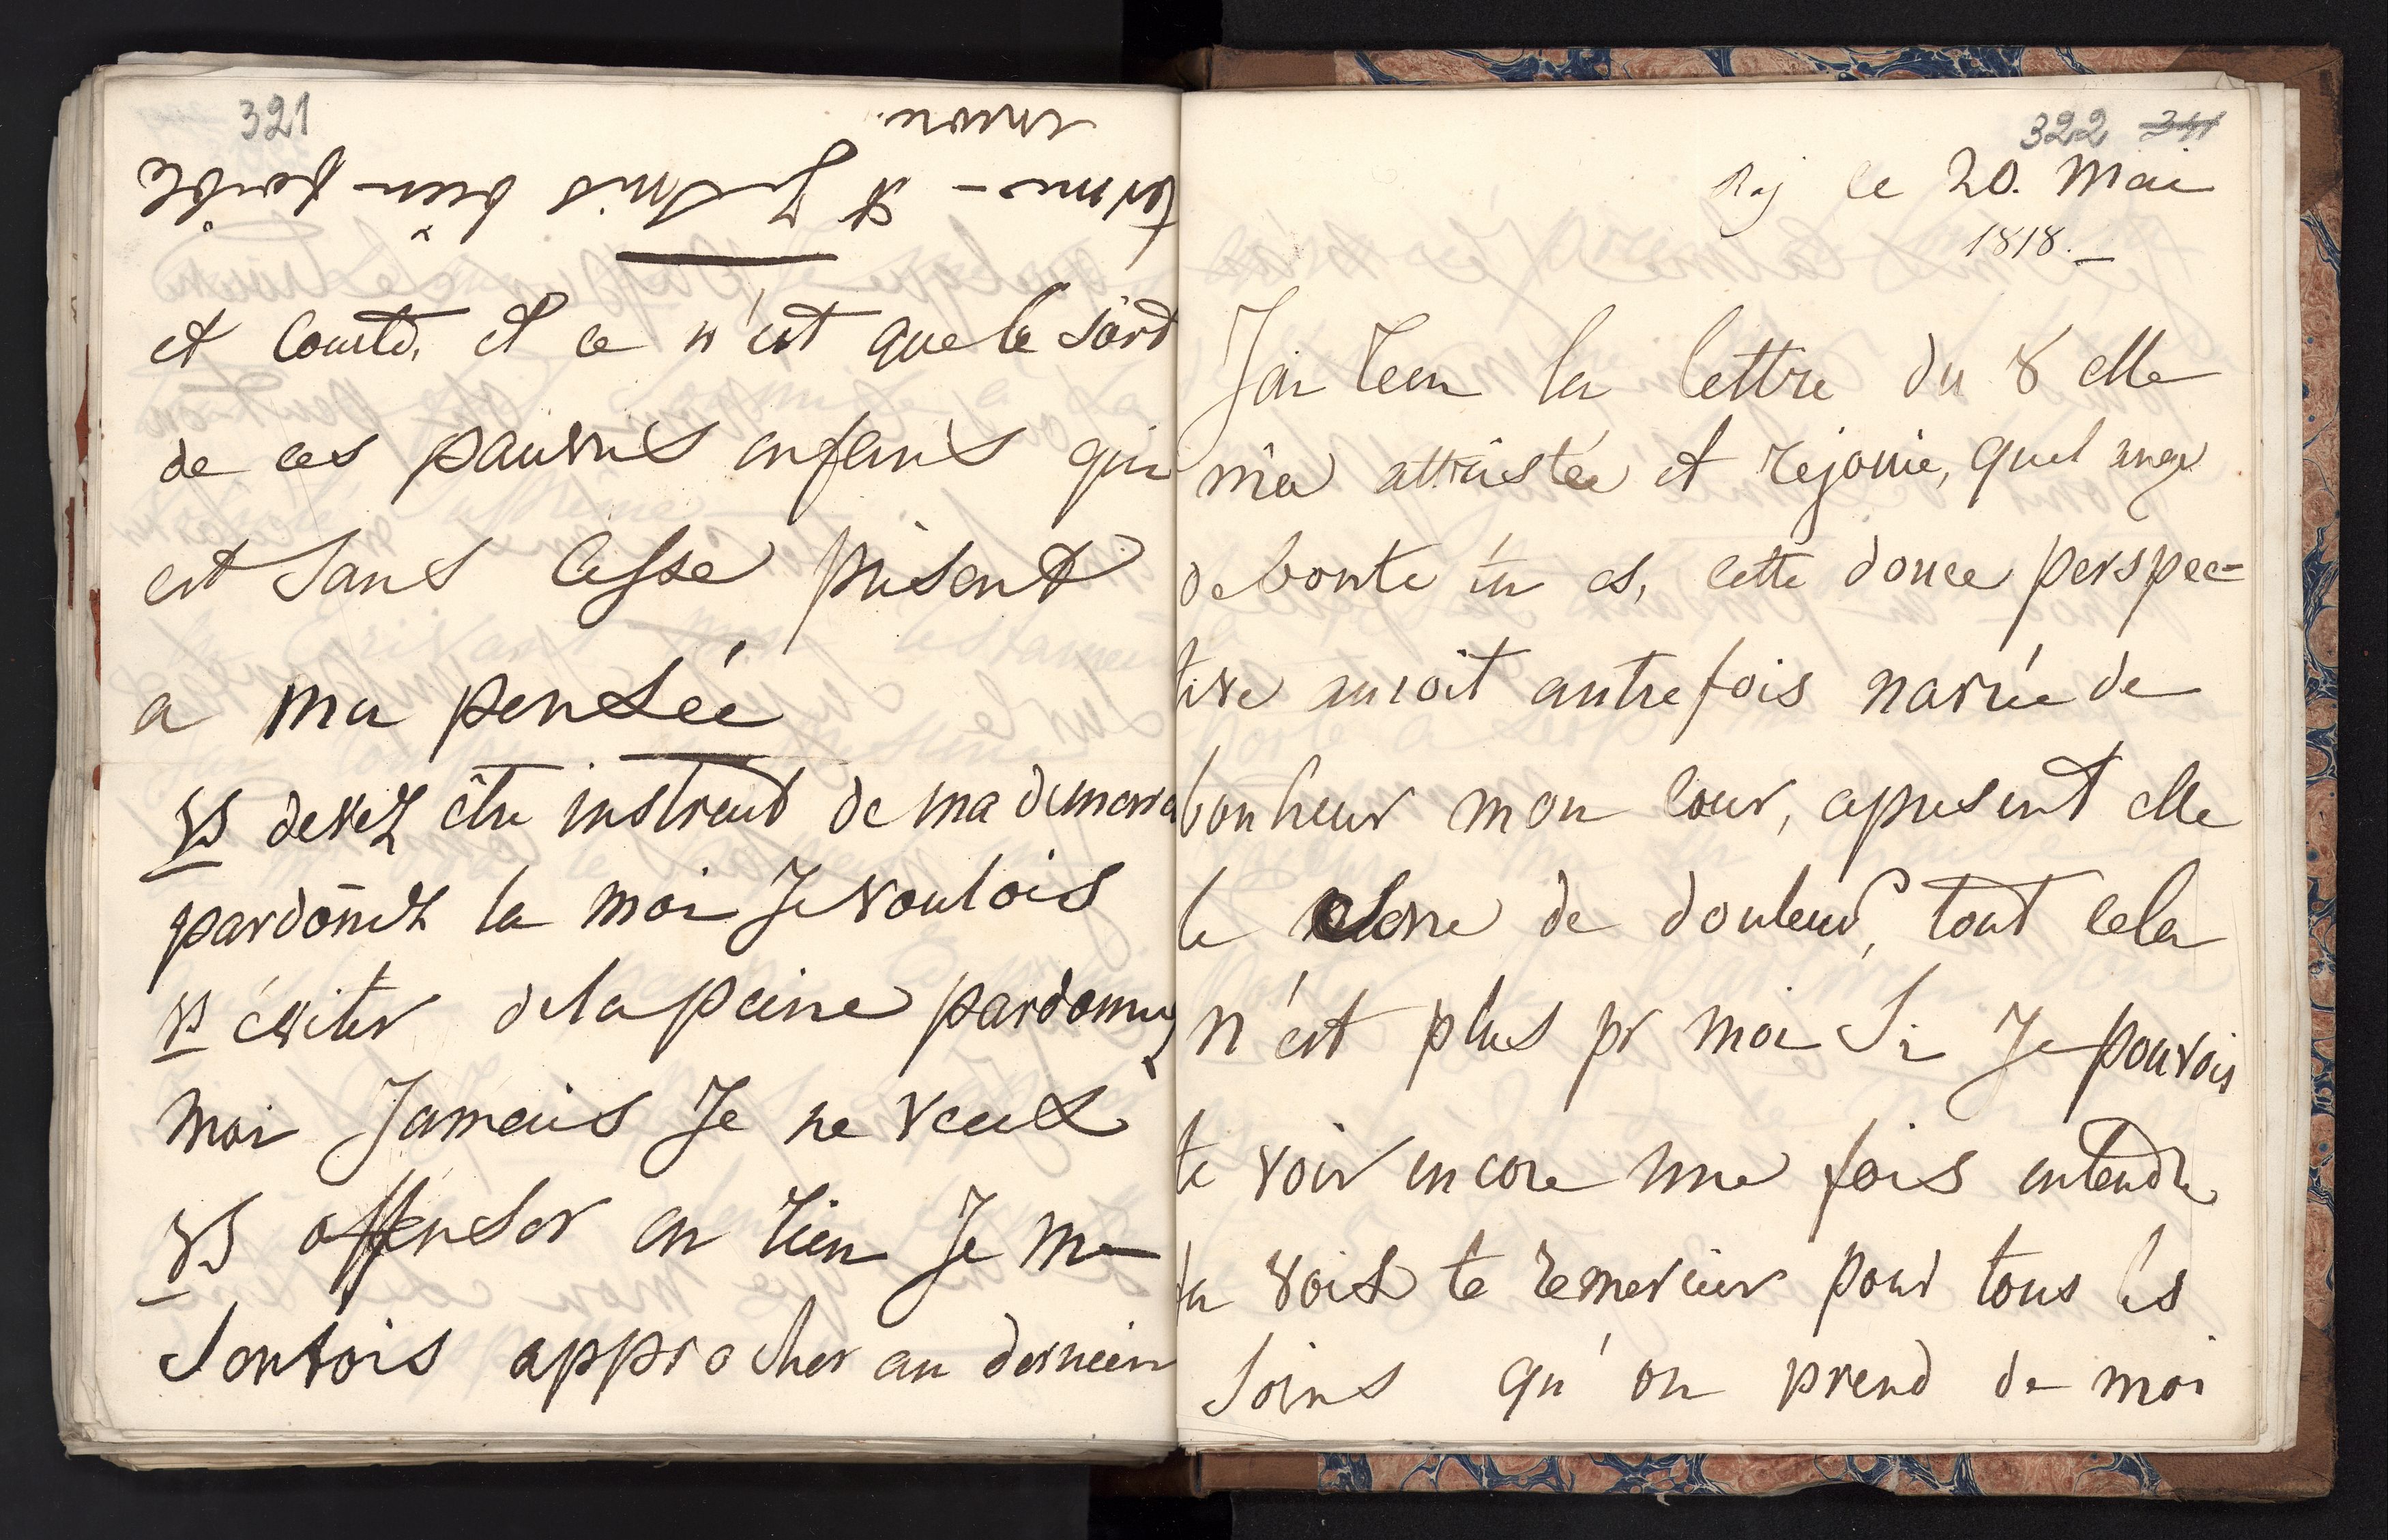 321
et courte, et ce n'est que le sort
de ces pauvres enfans qui
est sans cesse présent
a ma pensée
vs devez être instruit de ma demarche
pardonéz la moi Je voulois
vs éviter de la peine pardonnez
moi Jamais Je ne veux
vs offenser en rien Je me
sentois approcher au dernier
terme - et Je suis bien foible
encore.
322 311
le 20. Mai
1818. _
J'ai recu la lettre du 8 elle
m'a attristée et rejouie, quel ange
de bonté tu es, cette douce perspec=
tive auroit autrefois navrée de
bonheur mon cœur, apresent elle
le navre de douleur, tout cela
n'est plus pr moi Si Je pouvois
te voir encore une fois entendre
ta voix te remercier pour tous les
soins qu'on prend de moi